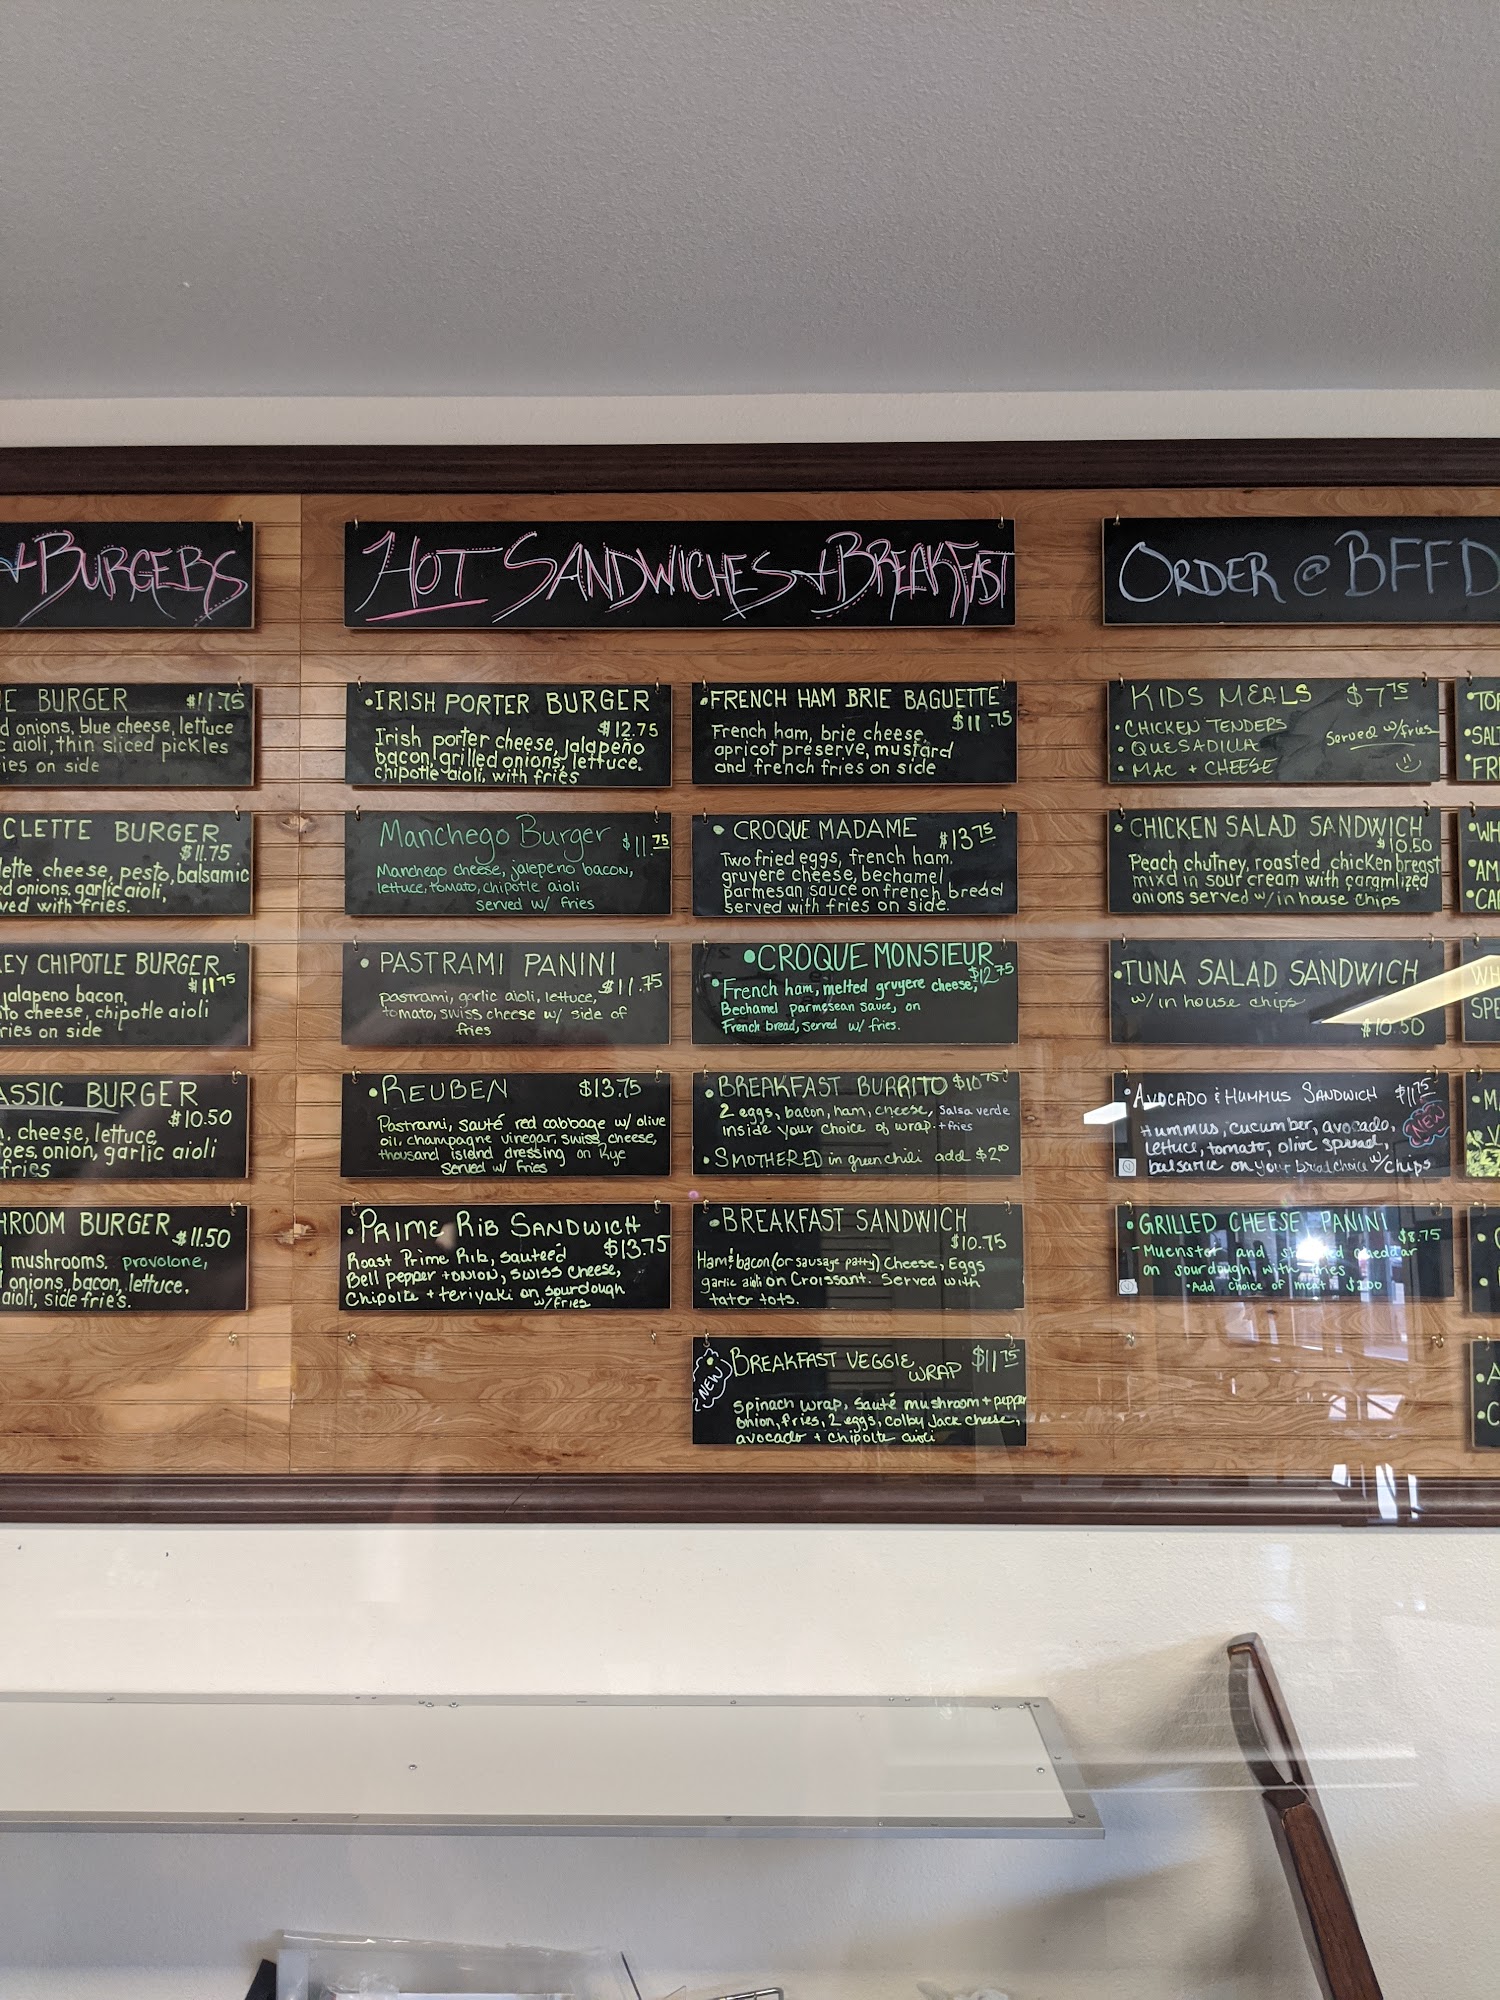 + BURGERS
E BURGER $11.75
d onions, blue cheese, lettuce
c aioli, thin sliced pickles
ies on side
CLETTE BURGER
$11.75
lette cheese, pesto, balsamic
ed onions, garlic aioli,
ved with fries.
EY CHIPOTLE BURGER
$11.75
jalapeno bacon,
to cheese, chipotle aioli
ries on side
ASSIC BURGER
$10.50
, cheese, lettuce,
oes, onion, garlic aioli
fries
HROOM BURGER $11.50
mushrooms, provolone,
onions, bacon, lettuce,
aioli, side fries.
HOT SANDWICHES + BREAKFAST
•IRISH PORTER BURGER
$12.75
Irish porter cheese, jalapeño
bacon, grilled onions, lettuce,
chipotle aioli, with fries
Manchego Burger $11.75
Manchego cheese, jalepeno bacon,
lettuce, tomato, chipotle aioli
served w/ fries
• PASTRAMI PANINI
$11.75
pastrami, garlic aioli, lettuce,
tomato, swiss cheese w/ side of
fries
•REUBEN $13.75
Pastrami, sauté red cabbage w/ olive
oil, champagne vinegar, swiss cheese,
thousand island dressing on Rye
Served w/ fries
•PRIME RIB SANDWICH
$13.75
Roast Prime Rib, sauteed
Bell pepper + onion, swiss cheese,
Chipolte + teriyaki on sourdough
w/fries
•FRENCH HAM BRIE BAGUETTE
$11.75
French ham, brie cheese,
apricot preserve, mustard
and french fries on side
• CROQUE MADAME $13.75
Two fried eggs, french ham,
gruyere cheese, bechamel
parmesan sauce on french bread
served with fries on side.
•CROQUE MONSIEUR
$12.75
•French ham, melted gruyere cheese,
Bechamel parmesean sauce, on
French bread, served w/ fries.
•BREAKFAST BURRITO $10.75
2 eggs, bacon, ham, cheese, Salsa verde
inside your choice of wrap. + fries
• SMOTHERED in green chili add $2.00
•BREAKFAST SANDWICH
$10.75
Ham & bacon (or sausage patty) Cheese, Eggs
garlic aioli on Croissant. Served with
tater tots.
NEW
•BREAKFAST VEGGIE WRAP $11.75
Spinach wrap, sauté mushroom + pepper
onion, fries, 2 eggs, colby Jack cheese,
avocado + chipolte aioli
ORDER @ BFFD
•KIDS MEALS $7.75
• CHICKEN TENDERS
• QUESADILLA
• MAC + CHEESE
Served w/fries
• CHICKEN SALAD SANDWICH
$10.50
Peach chutney, roasted chicken breast
mixd in sour cream with caramlized
onions served w/in house chips
•TUNA SALAD SANDWICH
w/ in house chips
$10.50
•AVOCADO & HUMMUS SANDWICH $11.75
NEW
Hummus, cucumber, avocado,
lettuce, tomato, olive spread,
balsamic on your bread choice w/ chips
•GRILLED CHEESE PANINI
$8.75
- Muenster and cheddar
on sourdough with fries
•Add choice of meat $2.00
•TOR
•SAL
•FRE
•WH
•AM
•CA
WH
SPE
•M
V
•A
•C